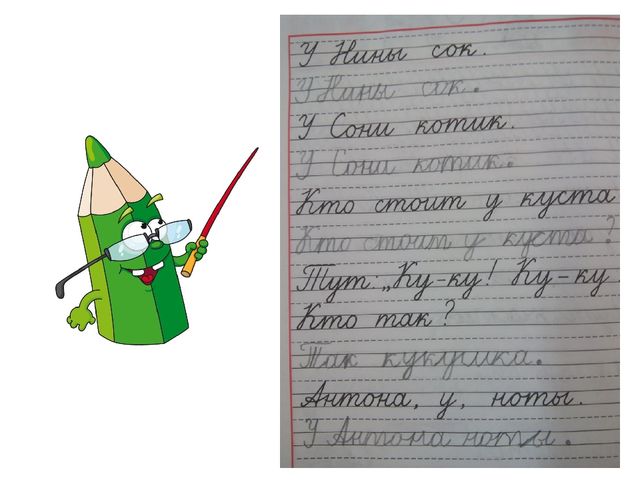 У Нины сок.
У Нины сок.
У Сони котик.
У Сони котик.
Кто стоит у куста
Кто стоит у куста?
Тут „Ку-ку! Ку-ку.
Кто так?
Так кукушка.
Антона, у, ноты.
У Антона ноты.